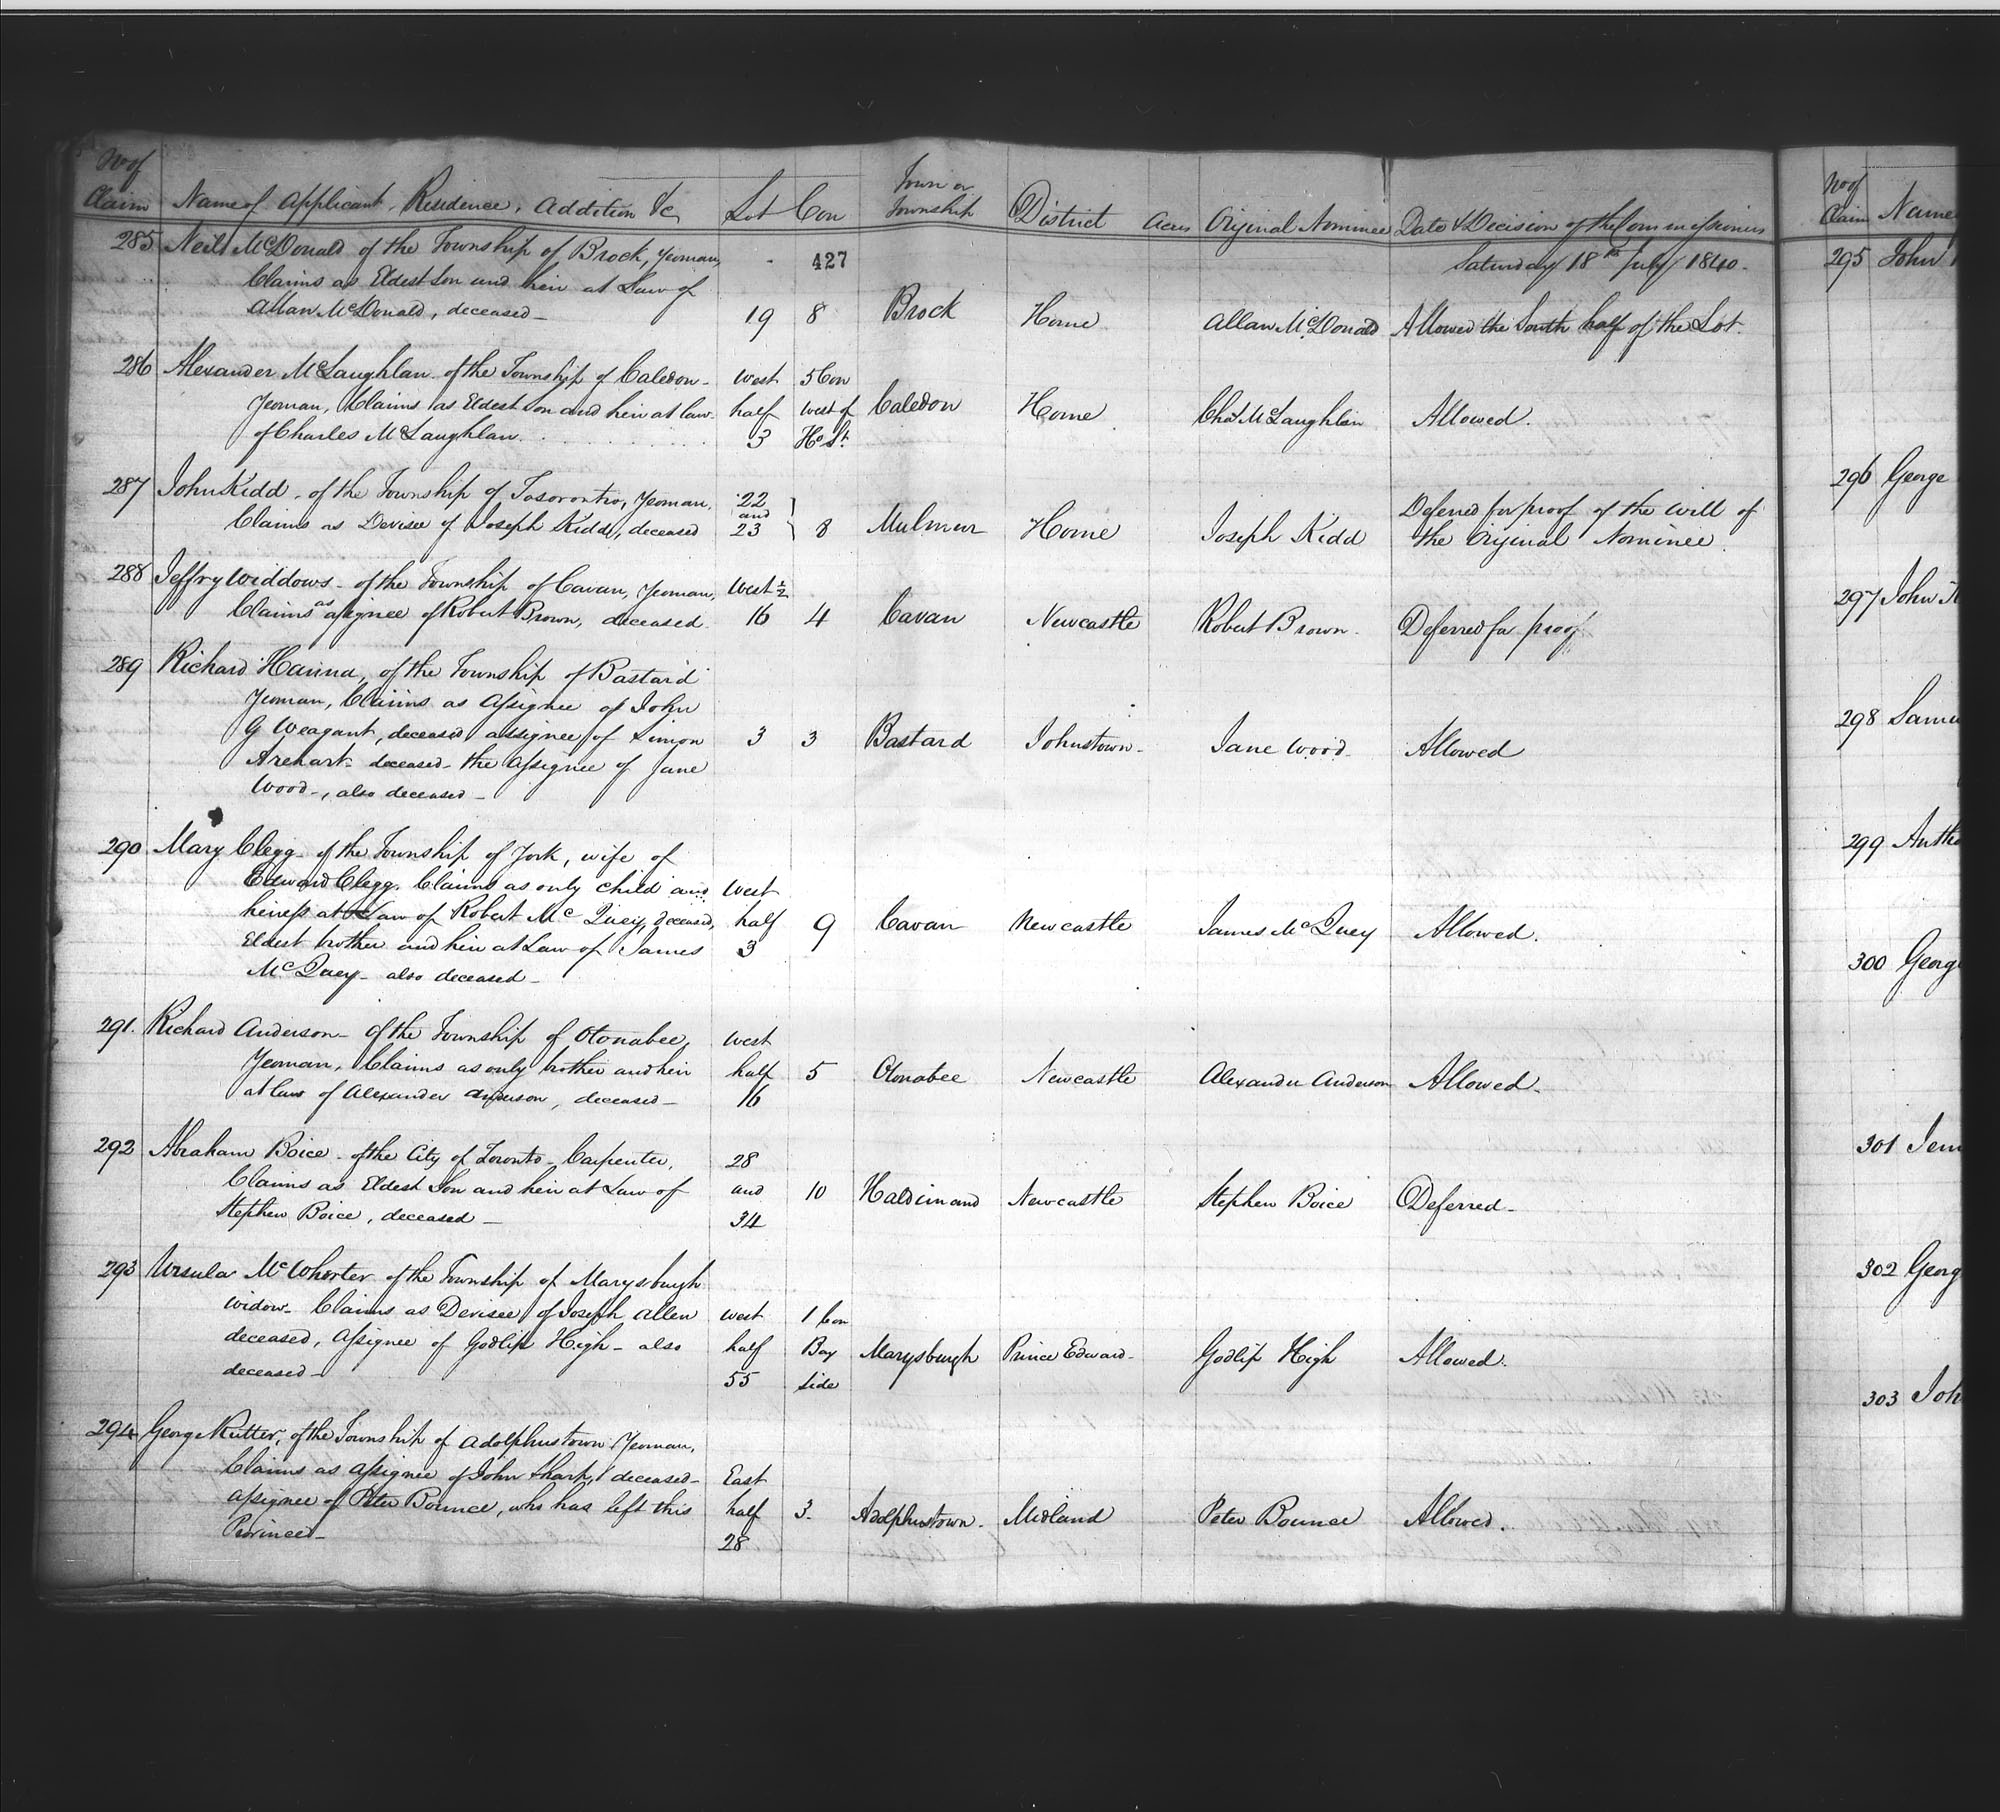 No of Claim Name of Applicant, Residence, Addition &c Lot Con Town or Township District Acres Original Nominee Date & Decision of the Commissioners
285 Neill McDonald of the Township of Brock, Yeoman, 427 Saturday 18th July 1840.
Claims as Eldest Son and heir at Law of
Allan McDonald, deceased 19 8 Brock Home Allan McDonald Allowed the South half of the Lot.
286 Alexander McLaughlan of the Township of Caledon West 5 Con
Yeoman, Claims as Eldest Son and heir at law half West of Caledon Home Chas McLaughlan Allowed.
of Charles McLaughlan. 3 Ho St.
287 John Kidd of the Township of Tosorontio, Yeoman, 22 and Deferred for proof of the will of
Claims as Devisee of Joseph Kidd, deceased 23 8 Mulmur Home Joseph Kidd the Original Nominee.
288 Jeffry Widdows of the Township of Cavan, Yeoman, West ½
Claims as assignee of Robert Brown, deceased 16 4 Cavan Newcastle Robert Brown. Deferred for proof
289 Richard Hanna, of the Township of Bastard
Yeoman, Claims as Assignee of John
G Weagant, deceased assignee of Simon 3 3 Bastard Johnstown Jane Wood Allowed
Arehart deceased the Assignee of Jane
Wood, also deceased
290 Mary Clegg of the Township of York, wife of
Edward Clegg. Claims as only child and West
heiress at Law of Robert McQuey, deceased, half 9 Cavan Newcastle James McQuey Allowed.
Eldest brother and heir at Law of James 3
McQuey also deceased
291. Richard Anderson of the Township of Otonabee, West
Yeoman, Claims as only brother and heir half 5 Otonabee Newcastle Alexander Anderson Allowed
at law of Alexander Anderson, deceased 16
292 Abraham Boice of the City of Toronto Carpenter, 28
Claims as Eldest Son and heir at Law of and 10 Haldimand Newcastle Stephen Boice Deferred
Stephen Boice, deceased 34
293 Ursula McWhorter of the Township of Marysburgh
widow Claims as Devisee of Joseph Allen West 1 Con
deceased, Assignee of Godlip High also half Bay Marysburgh Prince Edward Godlip High Allowed.
deceased 55 Side
294 George Rutter, of the Township of Adolphustown Yeoman,
Claims as Assignee of John Sharp, deceased East
Assignee of Peter Bounce, who has left this half 3. Adolphustown Midland Peter Bounce Allowed.
Province 28
No of Claim Name
295 John
296 George
297 John
298 Samu
299 Antho
300 Georg
301 Jem
302 Georg
303 Joh